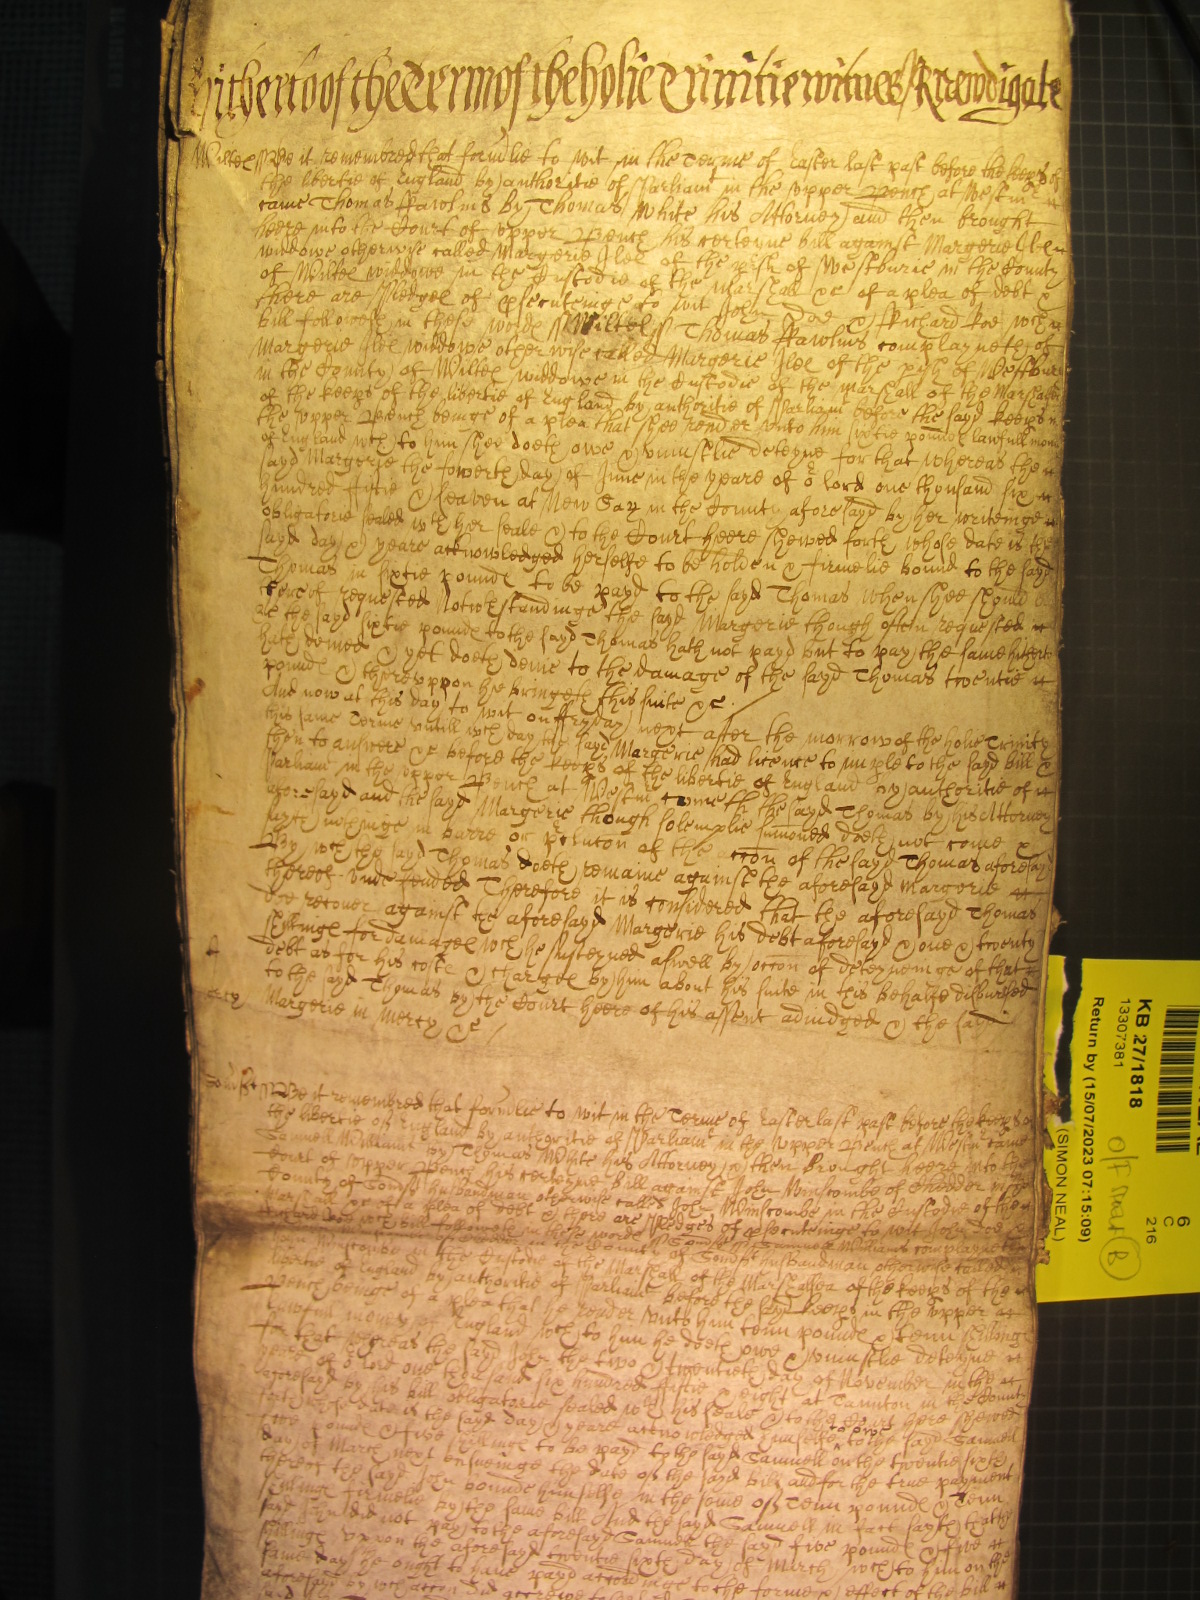 hitherto of the Terme of the holie Trinitie witnes R Newdigate
Wiltes Be it remembred that form'lie to wit in the Terme of Easter last past before the keeps of
the libertie of England by authoritie of Parliam't in the upper Bench at Westm'
came Thomas Rawlins by Thomas White his Attorney and then brought
heere into the Court of upper Bench his certeyne bill against Margerie Iles
widdowe otherwise called Margerie Iles of the p'ish of Westburie in the County
of Wiltes widdowe in the Custodie of the Marshall &c of a plea of debt &
there are Pledges of p'secuteinge to wit John Doe & Richard Roe wch
bill followeth in these wordes Wiltes Thomas Rawlins complayneth of
Margerie Iles widdowe otherwise called Margerie Iles of the p'ish of Westburie
in the County of Wiltes widdowe in the Custodie of the Marshall of the Marshalsea
of the keeps of the libertie of England by authoritie of Parliam't before the sayd keeps in
the upper Bench beinge of a plea that shee render unto him sixtie poundes lawfull money
of England wch to him shee doeth owe & uniustlie deteyne for that whereas the
sayd Margerie the fowerth day of June in the yeare of o'r lord one thousand six
hundred fiftie & seaven at New Sarum in the County aforesayd by her writeinge
obligatorie sealed wth her seale & to the Court heere shewed forth whose date is the
sayd day & yeare acknowledged herselfe to be holden & firmelie bound to the sayd
Thomas in sixtie poundes to be payd to the sayd Thomas when shee should be
thereof requested Notwthstandinge the sayd Margerie though often requested
the sayd sixtie poundes to the sayd Thomas hath not payd but to pay the same hitherto
hath denied & yet doeth denie to the damage of the sayd Thomas twentie
poundes & thereuppon hee bringeth this suite &c.
And now at this day to wit on fryday next after the morrow of the holie Trinity
this same Terme untill wch day the sayd Margerie had licence to imple to the sayd bill &
then to answere &c before the keeps of the libertie of England by authoritie of
Parliam't in the upper Bench at Westm' cometh the sayd Thomas by his Attorney
aforesayd and the sayd Margerie though solemplie summoned doeth not come &
sayeth nothinge in barre or p'clusion of the accon of the sayd Thomas aforesayd
By wch the sayd Thomas doeth remaine against the aforesayd Margerie
thereof undefended Therefore it is considered that the aforesayd Thomas
doe recover against the aforesayd Margerie his debt aforesayd & one & twenty
shillinges for damages wch he susteyned aswell by occon of deteyneinge of that
debt as for his costes & charges by him about his suite in this behalfe disbursed
to the sayd Thomas by the Court heere of his assent adiudged & the sayd
mercy Margerie in Mercy &c
Som'st Be it remembred that form'lie to wit in the Terme of Easter last past before the keeps of
the libertie of England by authoritie of Parliam't in the upper Bench at Westm' came
Samuell Williams by Thomas White his Attorney & then brought heere into the
Court of upper Bench his certeyne bill against John Winscombe of Chedder in the
County of Som'st husbandman otherwise called John Winscombe in the Custodie of the
Marshall of a plea of debt & there are Pledges of p'secuteinge to wit John Doe &
Richard Roe wch bill followeth in these wordes Som'st Samuell Williams complayneth
in the County of Som'st husbandman otherwise called
Winscombe in the Custodie of the Marshall of the Marshalsea of the keeps of the
libertie of England by authoritie of Parliam't before the sayd keeps in the upper
Bench beinge of a plea that he render unto him tenn poundes & tenn shillinges
lawfull money of England wch to him he doeth owe & uniustlie deteyne
for that whereas the sayd John the two & twentieth day of November in the
yeare of o'r lord one thousand six hundred fiftie & eight at Taunton in the County
aforesayd by his bill obligatorie sealed wth his seale & to the Court here shewed
forth whose date is the sayd day & yeare acknowledged himselfe to owe to the sayd Samuell
five poundes & five shillinges to be payd to the sayd Samuell on the twentie sixth
day of March next ensueinge the date of the sayd bill and for the true payment
thereof the sayd John bounde himselfe in the some of Tenn poundes & Tenn
shillinges firmelie by the same bill And the sayd Samuell in fact sayeth that the
sayd John did not pay to the aforesayd Samuell the sayd five poundes & five
shillinges uppon the aforesayd twentie sixth day of March wch to him on the
same day he ought to have payd accordinge to the forme & effect of the bill
aforesayd by wch accon did accrewe to
KB 27/1818
13307381
Return by (15/07/2023 07:15:09)
(SIMON NEAL)
6
C
216
B